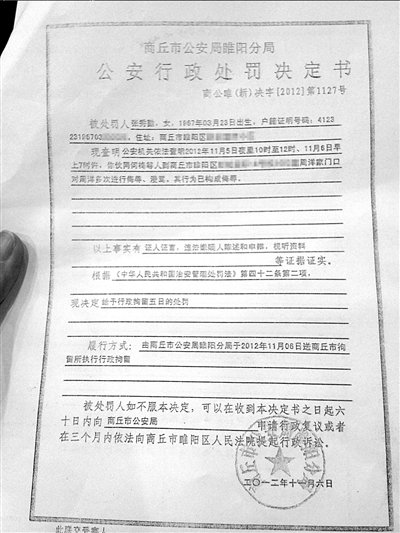 商丘市公安局睢阳分局
公安行政处罚决定书
商公睢(新)决字[2012]第1127号
被处罚人张秀勤，女，1967年03月23日出生，户籍证明号码：4123
23196703，住址：商丘市睢阳区
现查明公安机关依法查明2012年11月5日夜里10时至12时、11月6日早
上7时许，你伙同他等人到商丘市睢阳区周洋家门口
对周洋多次进行侮辱、谩骂，其行为已构成侮辱。
以上事实有 证人证言，违法嫌疑人陈述和申辩，视听资料
等证据证实。
根据 《中华人民共和国治安管理处罚法》第四十二条第二项，
现决定 给予行政拘留五日的处罚
履行方式： 由商丘市公安局睢阳分局于2012年11月06日送商丘市拘
留所执行行政拘留
被处罚人如不服本决定，可以在收到本决定书之日起六
十日内向 商丘市公安局 申请行政复议或者
在三个月内依法向商丘市睢阳区人民法院提起行政诉讼。
二〇一二年十一月六日